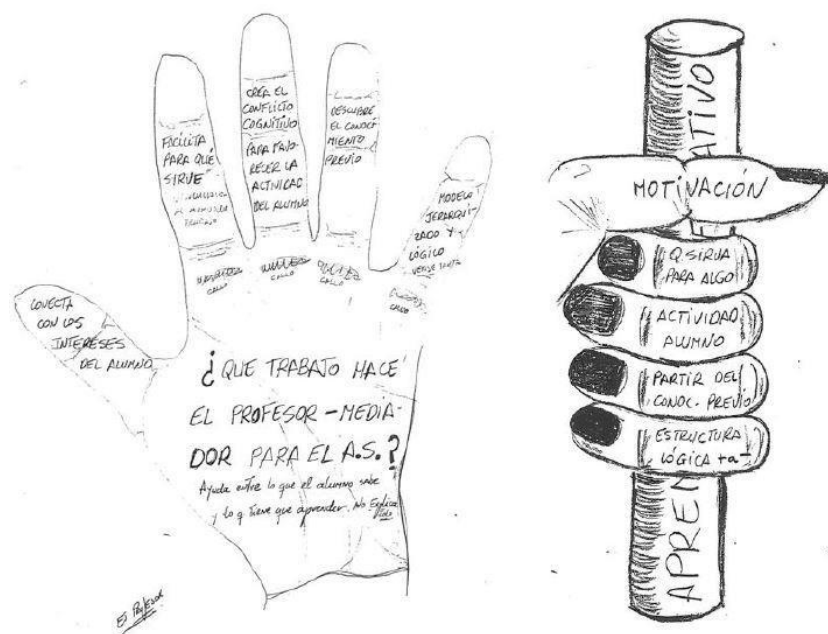 CONECTA
CON LOS
INTERESES
DEL ALUMNO
FACILITA
PARA QUÉ
SIRVE
CREA EL
CONFLICTO
COGNITIVO
PARA FAVO-
RECER LA
ACTIVIDAD
DEL ALUMNO
DESCUBRE
EL CONOCI-
MIENTO
PREVIO
MODELO
JERARQUI-
ZADO Y
LÓGICO
CALLO
CALLO
CALLO
¿QUE TRABAJO HACE
EL PROFESOR-MEDIA-
DOR PARA EL A.S.?
Ayuda entre lo que el alumno sabe
y lo q tiene que aprender. No Explica
todo
ES PROFESOR
ATIVO
MOTIVACIÓN
Q. SIRVA
PARA ALGO
ACTIVIDAD
ALUMNO
PARTIR DEL
CONOC. PREVIO
ESTRUCTURA
LÓGICA +a-
APREN